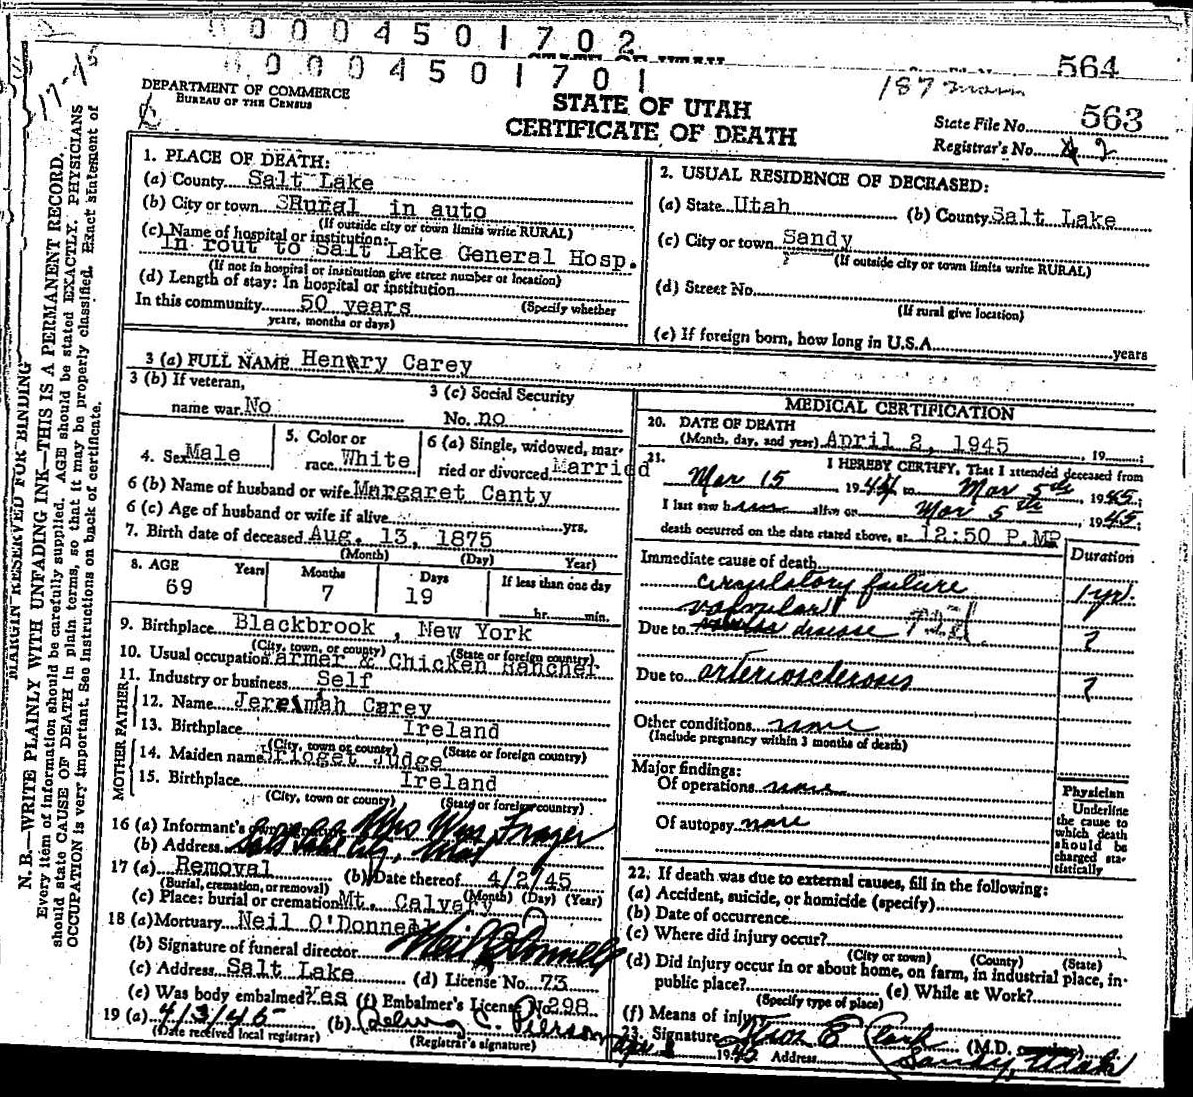 0004501702
STATE OF UTAH
564
0004501701
DEPARTMENT OF COMMERCE
BUREAU OF THE CENSUS
STATE OF UTAH
CERTIFICATE OF DEATH
187
State File No. 563
Registrar's No. 2
MARGIN RESERVED FOR BINDING
N. B.—WRITE PLAINLY WITH UNFADING INK—THIS IS A PERMANENT RECORD.
Every item of information should be carefully supplied. AGE should be stated EXACTLY. PHYSICIANS
should state CAUSE OF DEATH in plain terms, so that it may be properly classified. Exact statement of
OCCUPATION is very important. See instructions on back of certificate.
1. PLACE OF DEATH:
(a) County Salt Lake
(b) City or town Rural in auto
(If outside city or town limits write RURAL)
(c) Name of hospital or institution:
In rout to Salt Lake General Hosp.
(If not in hospital or institution give street number or location)
(d) Length of stay: In hospital or institution
In this community 50 years (Specify whether
years, months or days)
2. USUAL RESIDENCE OF DECEASED:
(a) State Utah (b) County Salt Lake
(c) City or town Sandy
(If outside city or town limits write RURAL)
(d) Street No.
(If rural give location)
(e) If foreign born, how long in U.S.A. years
3 (a) FULL NAME Henry Carey
3 (b) If veteran,
name war No
3 (c) Social Security
No. no
4. Sex Male
5. Color or
race White
6 (a) Single, widowed, mar-
ried or divorced Married
6 (b) Name of husband or wife Margaret Canty
6 (c) Age of husband or wife if alive yrs.
7. Birth date of deceased Aug. 13, 1875
(Month) (Day) Year)
8. AGE Years Months Days If less than one day
69 7 19 hr. min.
9. Birthplace Blackbrook , New York
(City, town, or county) (State or foreign country)
10. Usual occupation Farmer & Chicken Rancher
11. Industry or business Self
FATHER
12. Name Jeremiah Carey
13. Birthplace Ireland
(City, town or county) (State or foreign country)
MOTHER
14. Maiden name Bridget Judge
15. Birthplace Ireland
(City, town or county) (State or foreign country)
16 (a) Informant's own signature Mrs Wm Frazer
(b) Address Salt Lake City, Utah
17 (a) Removal (b) Date thereof 4/2/45
(Burial, cremation, or removal) (Month) (Day) (Year)
(c) Place: burial or cremation Mt. Calvary
18 (a) Mortuary Neil O'Donnell
(b) Signature of funeral director Neil O'Donnell
(c) Address Salt Lake (d) License No. 73
(e) Was body embalmed? Yes (f) Embalmer's License No 298
19 (a) 4/3/45 (b)
(Date received local registrar) (Registrar's signature)
MEDICAL CERTIFICATION
20. DATE OF DEATH
(Month, day, and year) April 2, 1945, 19 ;
21. I HEREBY CERTIFY, That I attended deceased from
Mar 15, 1944 to Mar 5th, 1945;
I last saw him alive on Mar 5th, 1945;
death occurred on the date stated above, at 12:50 P.M.
Duration
Immediate cause of death
circulatory failure 1 yr.
valvular
Due to disease ?
Due to arteriosclerosis ?
Other conditions none
(Include pregnancy within 3 months of death)
Major findings:
Of operations none
Of autopsy none
Physician
Underline
the cause to
which death
should be
charged sta-
tistically
22. If death was due to external causes, fill in the following:
(a) Accident, suicide, or homicide (specify)
(b) Date of occurrence
(c) Where did injury occur?
(City or town) (County) (State)
(d) Did injury occur in or about home, on farm, in industrial place, in-
public place? (e) While at Work?
(Specify type of place)
(f) Means of injury
23. Signature E Clark (M.D.
1945 Address Sandy, Utah